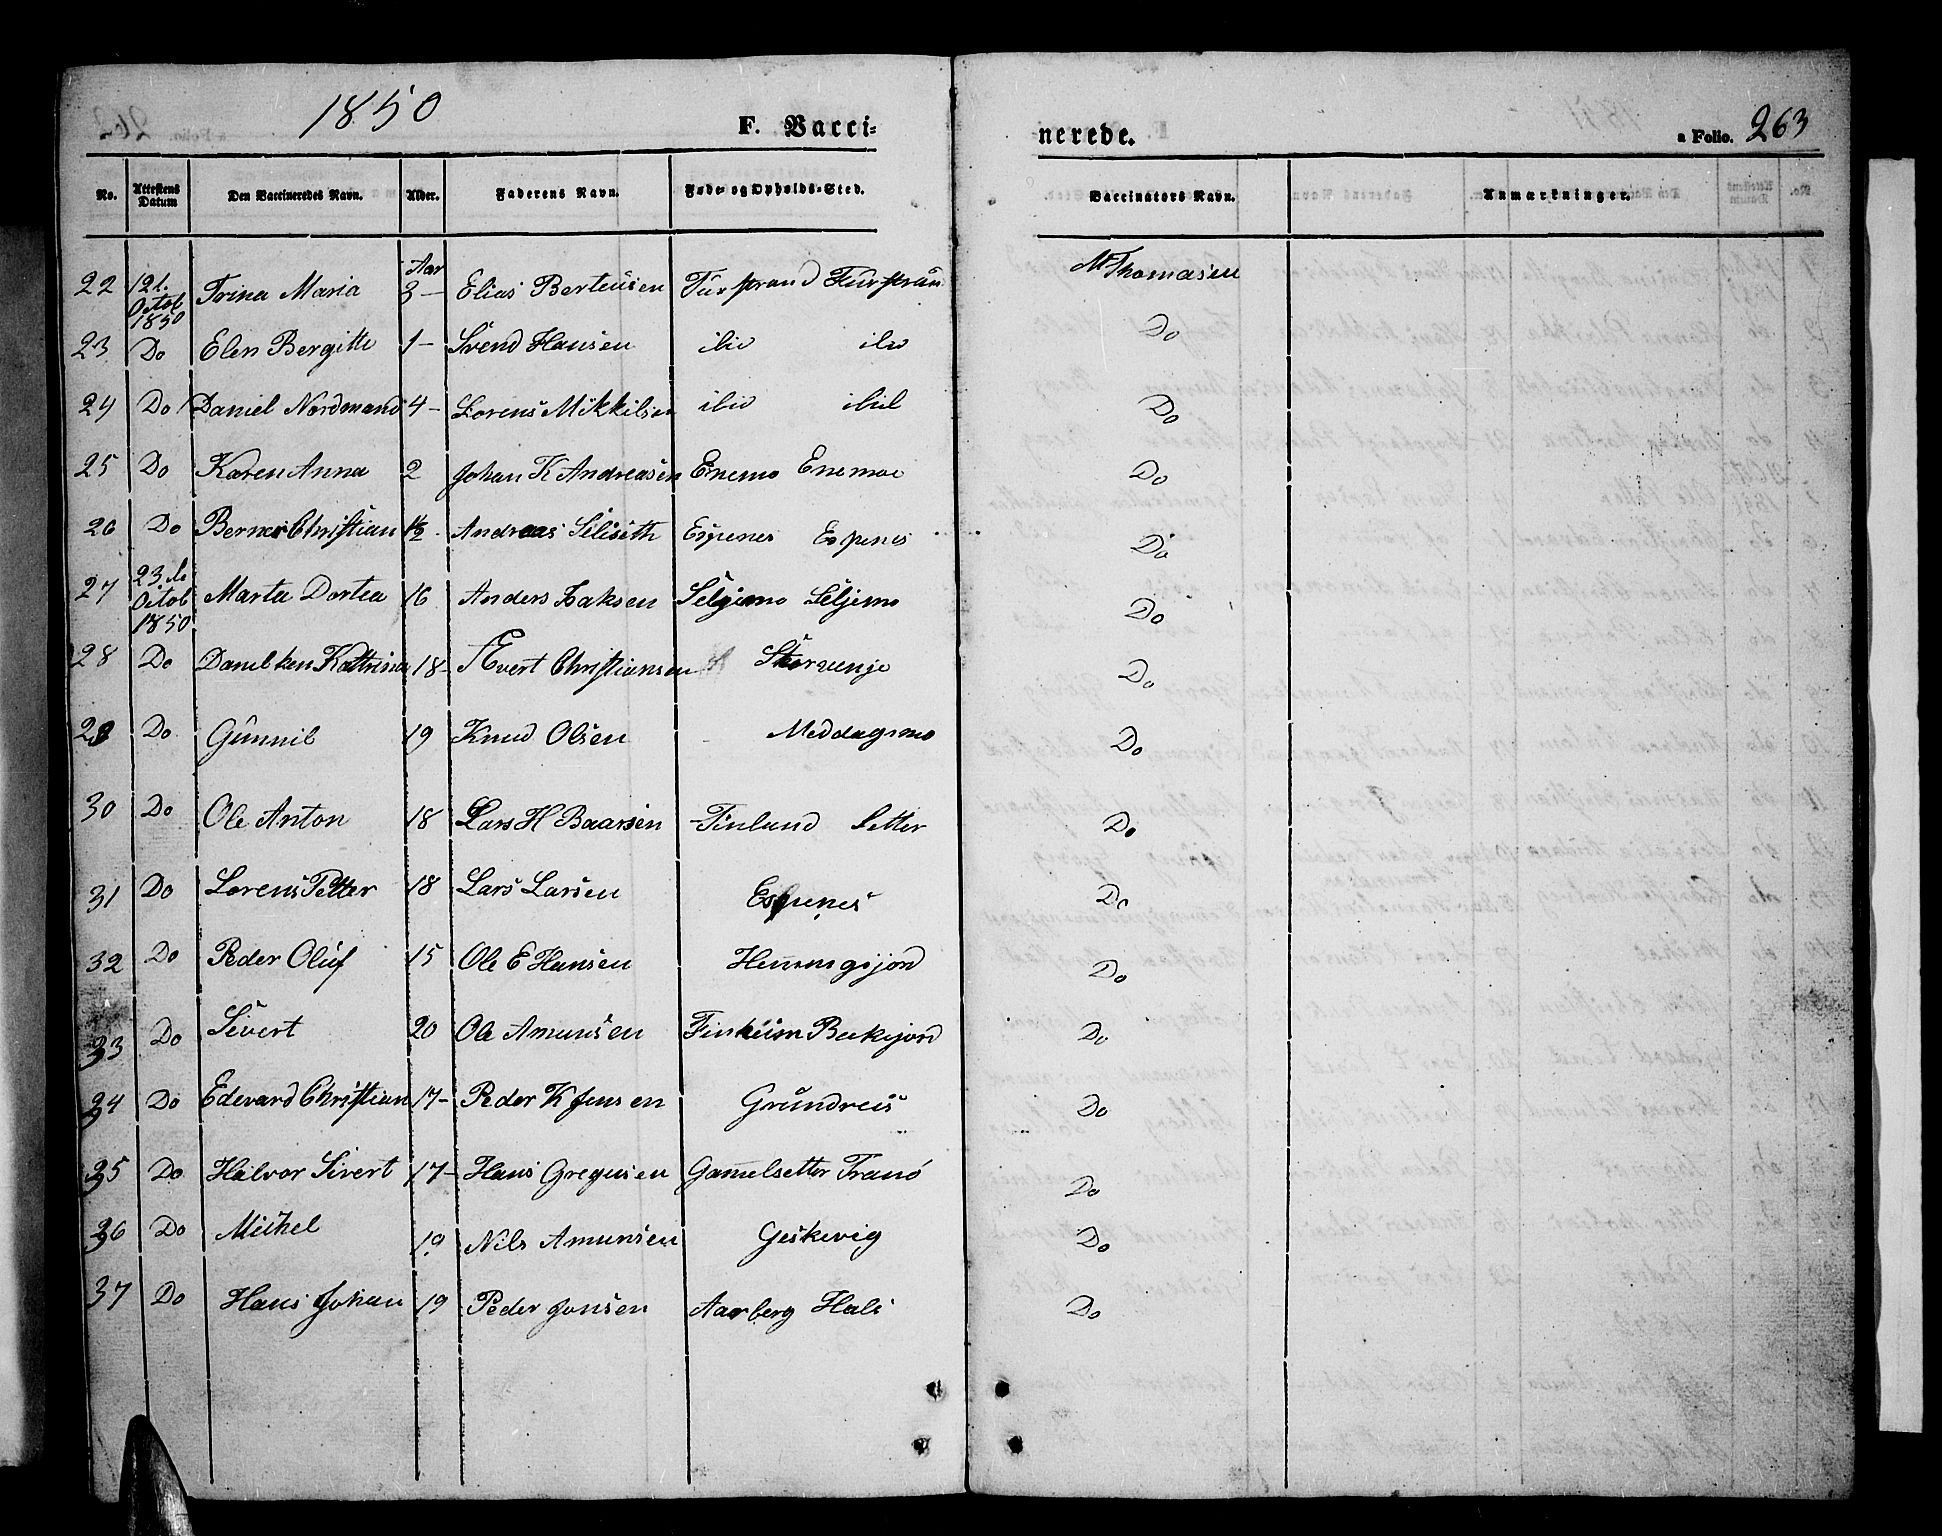 1850 F. Vacci= nerede. a Folio. 263
No. Attestens Datum Den Vaccineredes Navn. Alder. Faderens Navn. Føde- og Opholds-Sted. Vaccinators Navn. Anmærkninger.
22 12t. Octob 1850 Trina Maria Aar 3 — Elias Berteusen Turstrand M Thomasen
23 Do Elen Bergitte 1 — Svend Hansen Do
24 Do Daniel Nordmand 4 — Lorens Mikkilsen Do
25 Do Karen Anna 2 Johan K Andreasen Enemo Enemoe Do
26 Do Berner Christian 1½ Andreas Siliseth Espenes Espenes Do
27 23de Octob 1850 Marta Dortea 16 Anders Isaksen Seljemo Seljemo Do
28 Do Danelken Kattrina 18 — Evert Christiansen Storvenje Do
29 Do Gunnil 19 Knud Olsen Meddagsmo Do
30 Do Ole Anton 18 Lars H Baarsen Finlund Setter Do
31 Do Lorens Petter 18 Lars Larsen Espenes Do
32 Do Peder Oluf 15 Ole E Hansen Hemmgsjord Do
33 Do Sivert 20 Ole Amunsen Do
34 Do Edevard Christian 17 — Peder K Jensen Grundreis Do
35 Do Halvor Sivert 17 — Hans Gregusen Gamelsetter Tranö Do
36 Do Mikel 19 Nils Amunsen Geskevig Do
37 Do Hans Johan 19 Peder Jonsen Aarberg Do